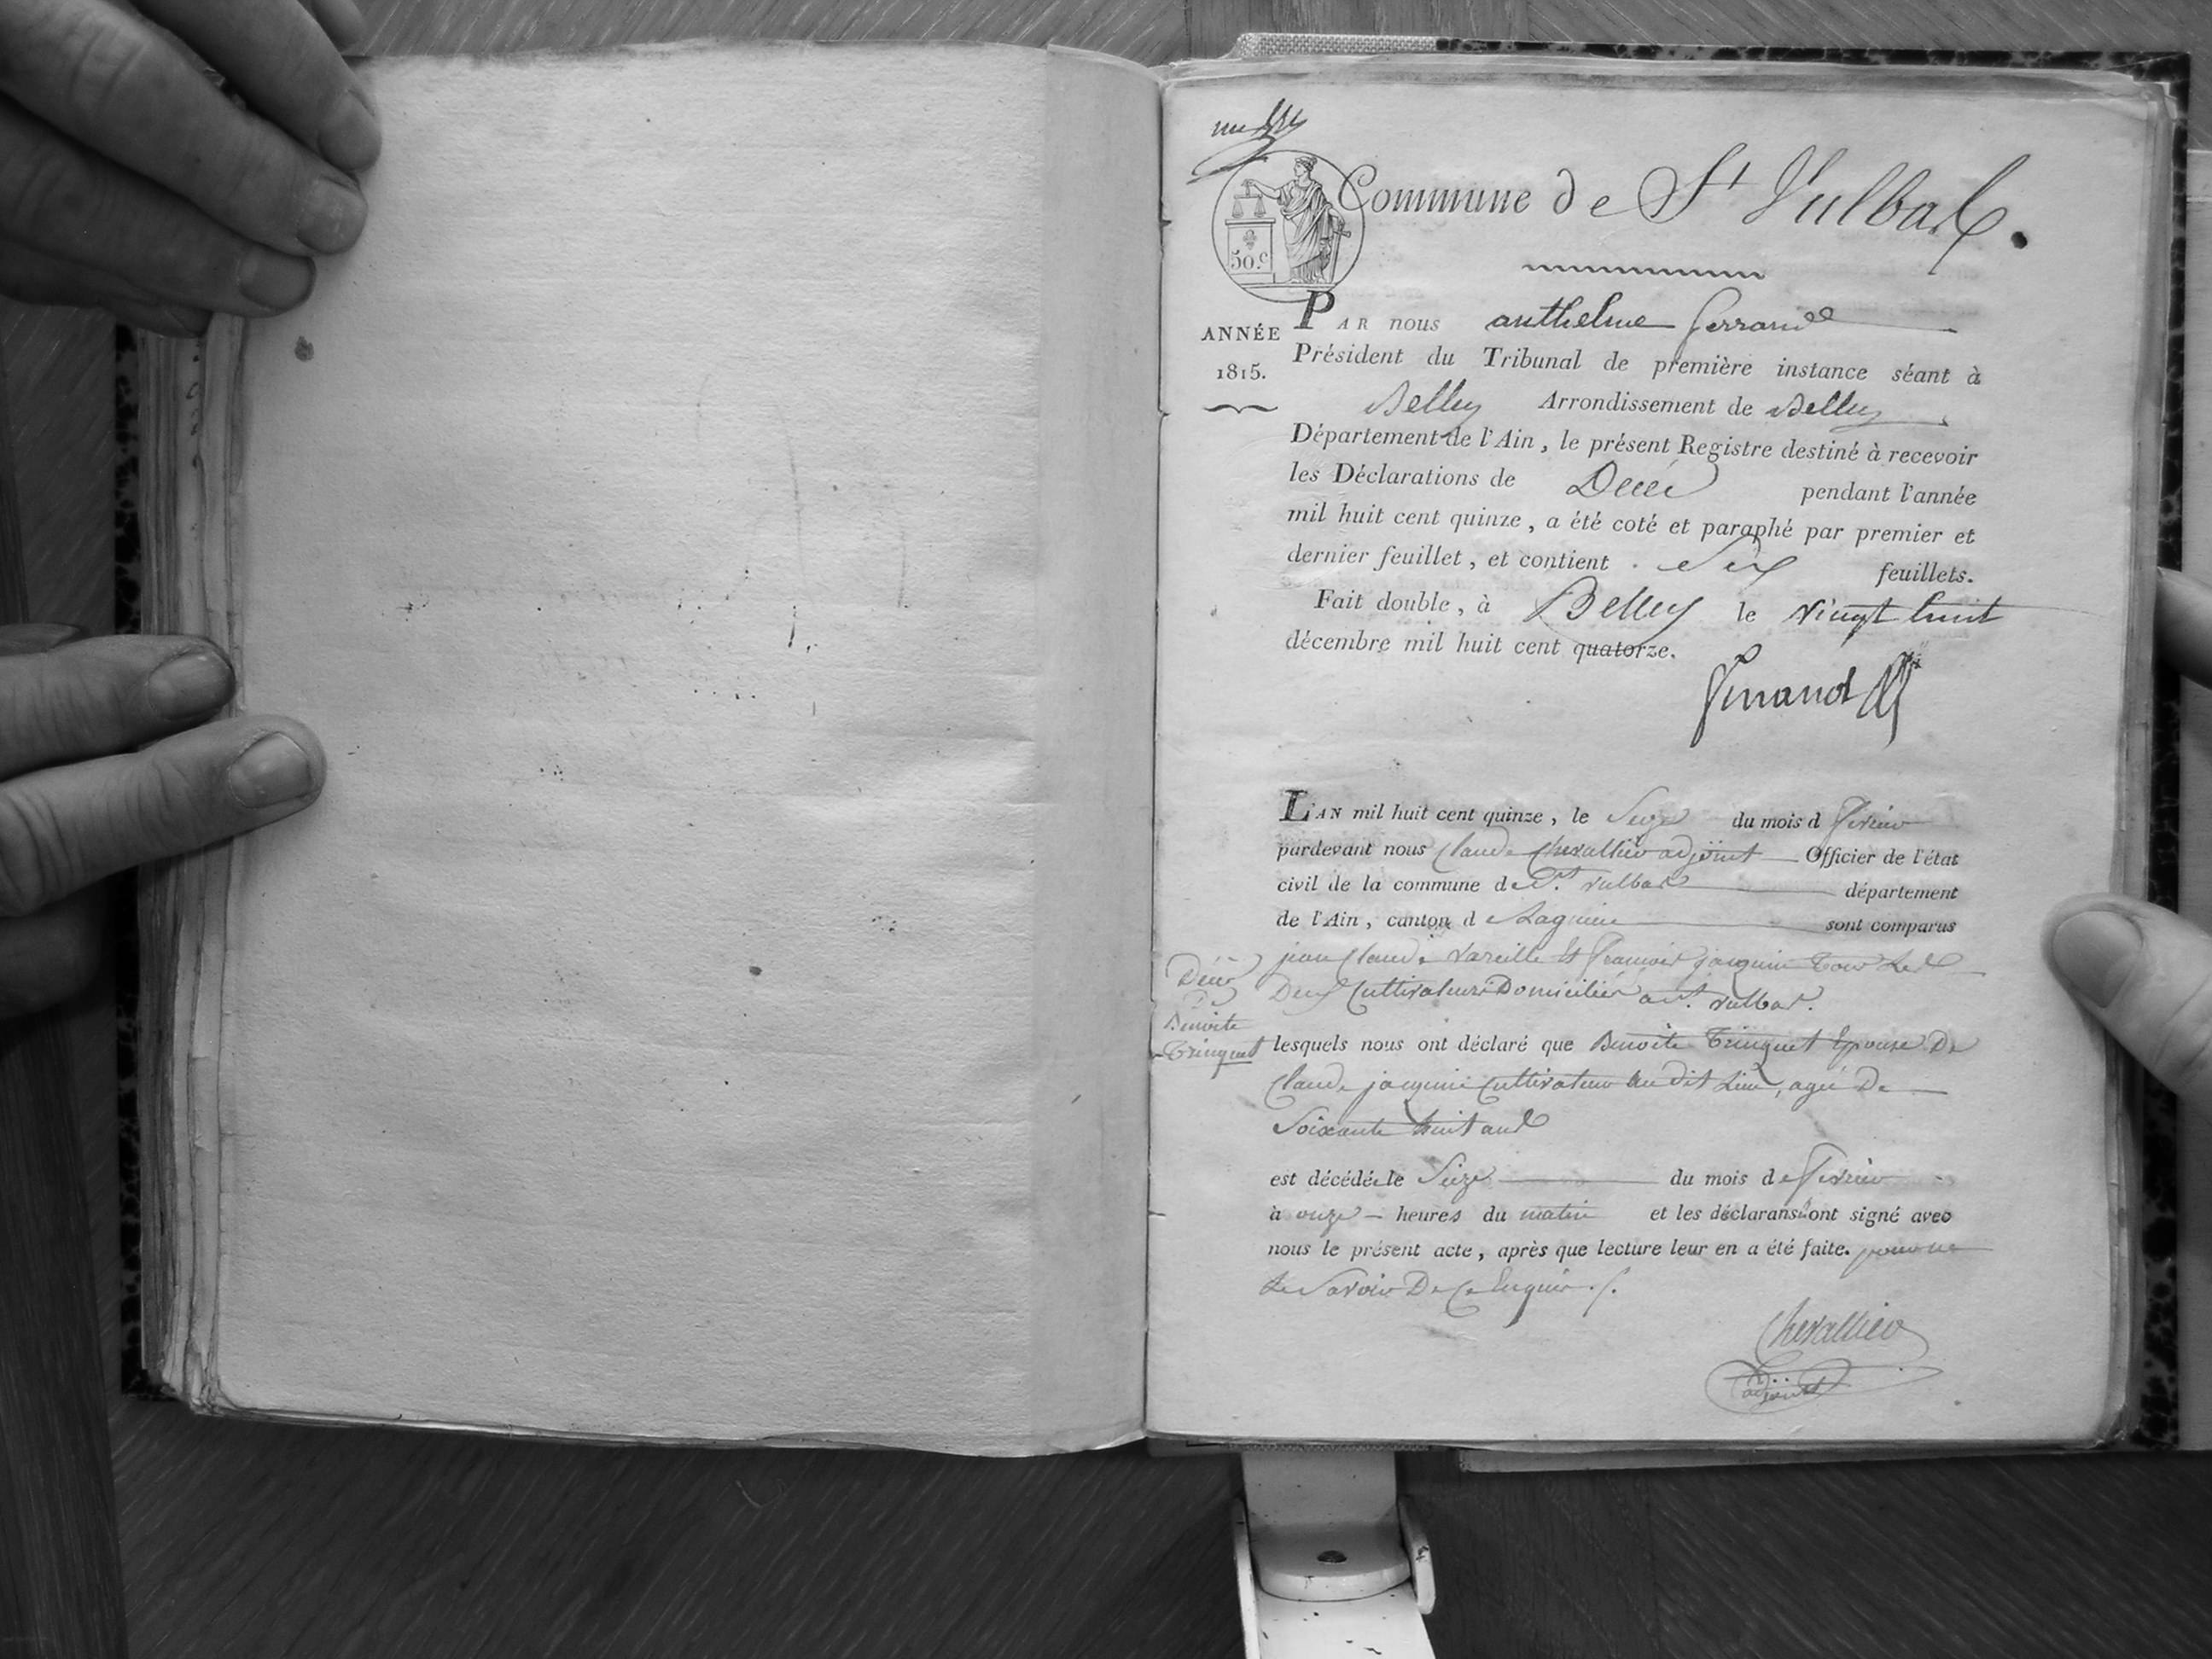 Commune de St Vulbas.
50.c
ANNÉE
1815.
PAR nous anthelme ferrand
Président du Tribunal de première instance séant à
Belley Arrondissement de Belley
Département de l'Ain, le présent Registre destiné à recevoir
les Déclarations de Décés pendant l'année
mil huit cent quinze, a été coté et paraphé par premier et
dernier feuillet, et contient Six feuillets.
Fait double, à Belley le vingt huit
décembre mil huit cent quatorze.
ferrand
L'AN mil huit cent quinze, le Seize du mois d fevrier
pardevant nous Claude Chevallier adjoint Officier de l'état
civil de la commune de St. vulbas département
de l'Ain, canton d Lagnieu sont comparus
jean Claude vareille Et francois jacquin tous Les
Deux Cultivateurs Domiciliés a St. vulbas.
Décés
De
Benoite
Trinquet
lesquels nous ont déclaré que Benoite Trinquet Epouse De
Claude jacquin Cultivateur au dit Lieu, agée De
Soixante huit ans
est décédée le Seize du mois de fevrier
à onze heures du matin et les déclarans ont signé avec
nous le présent acte, après que lecture leur en a été faite.
Le Savoir De Ce Enquis
Chevallier
adjoint